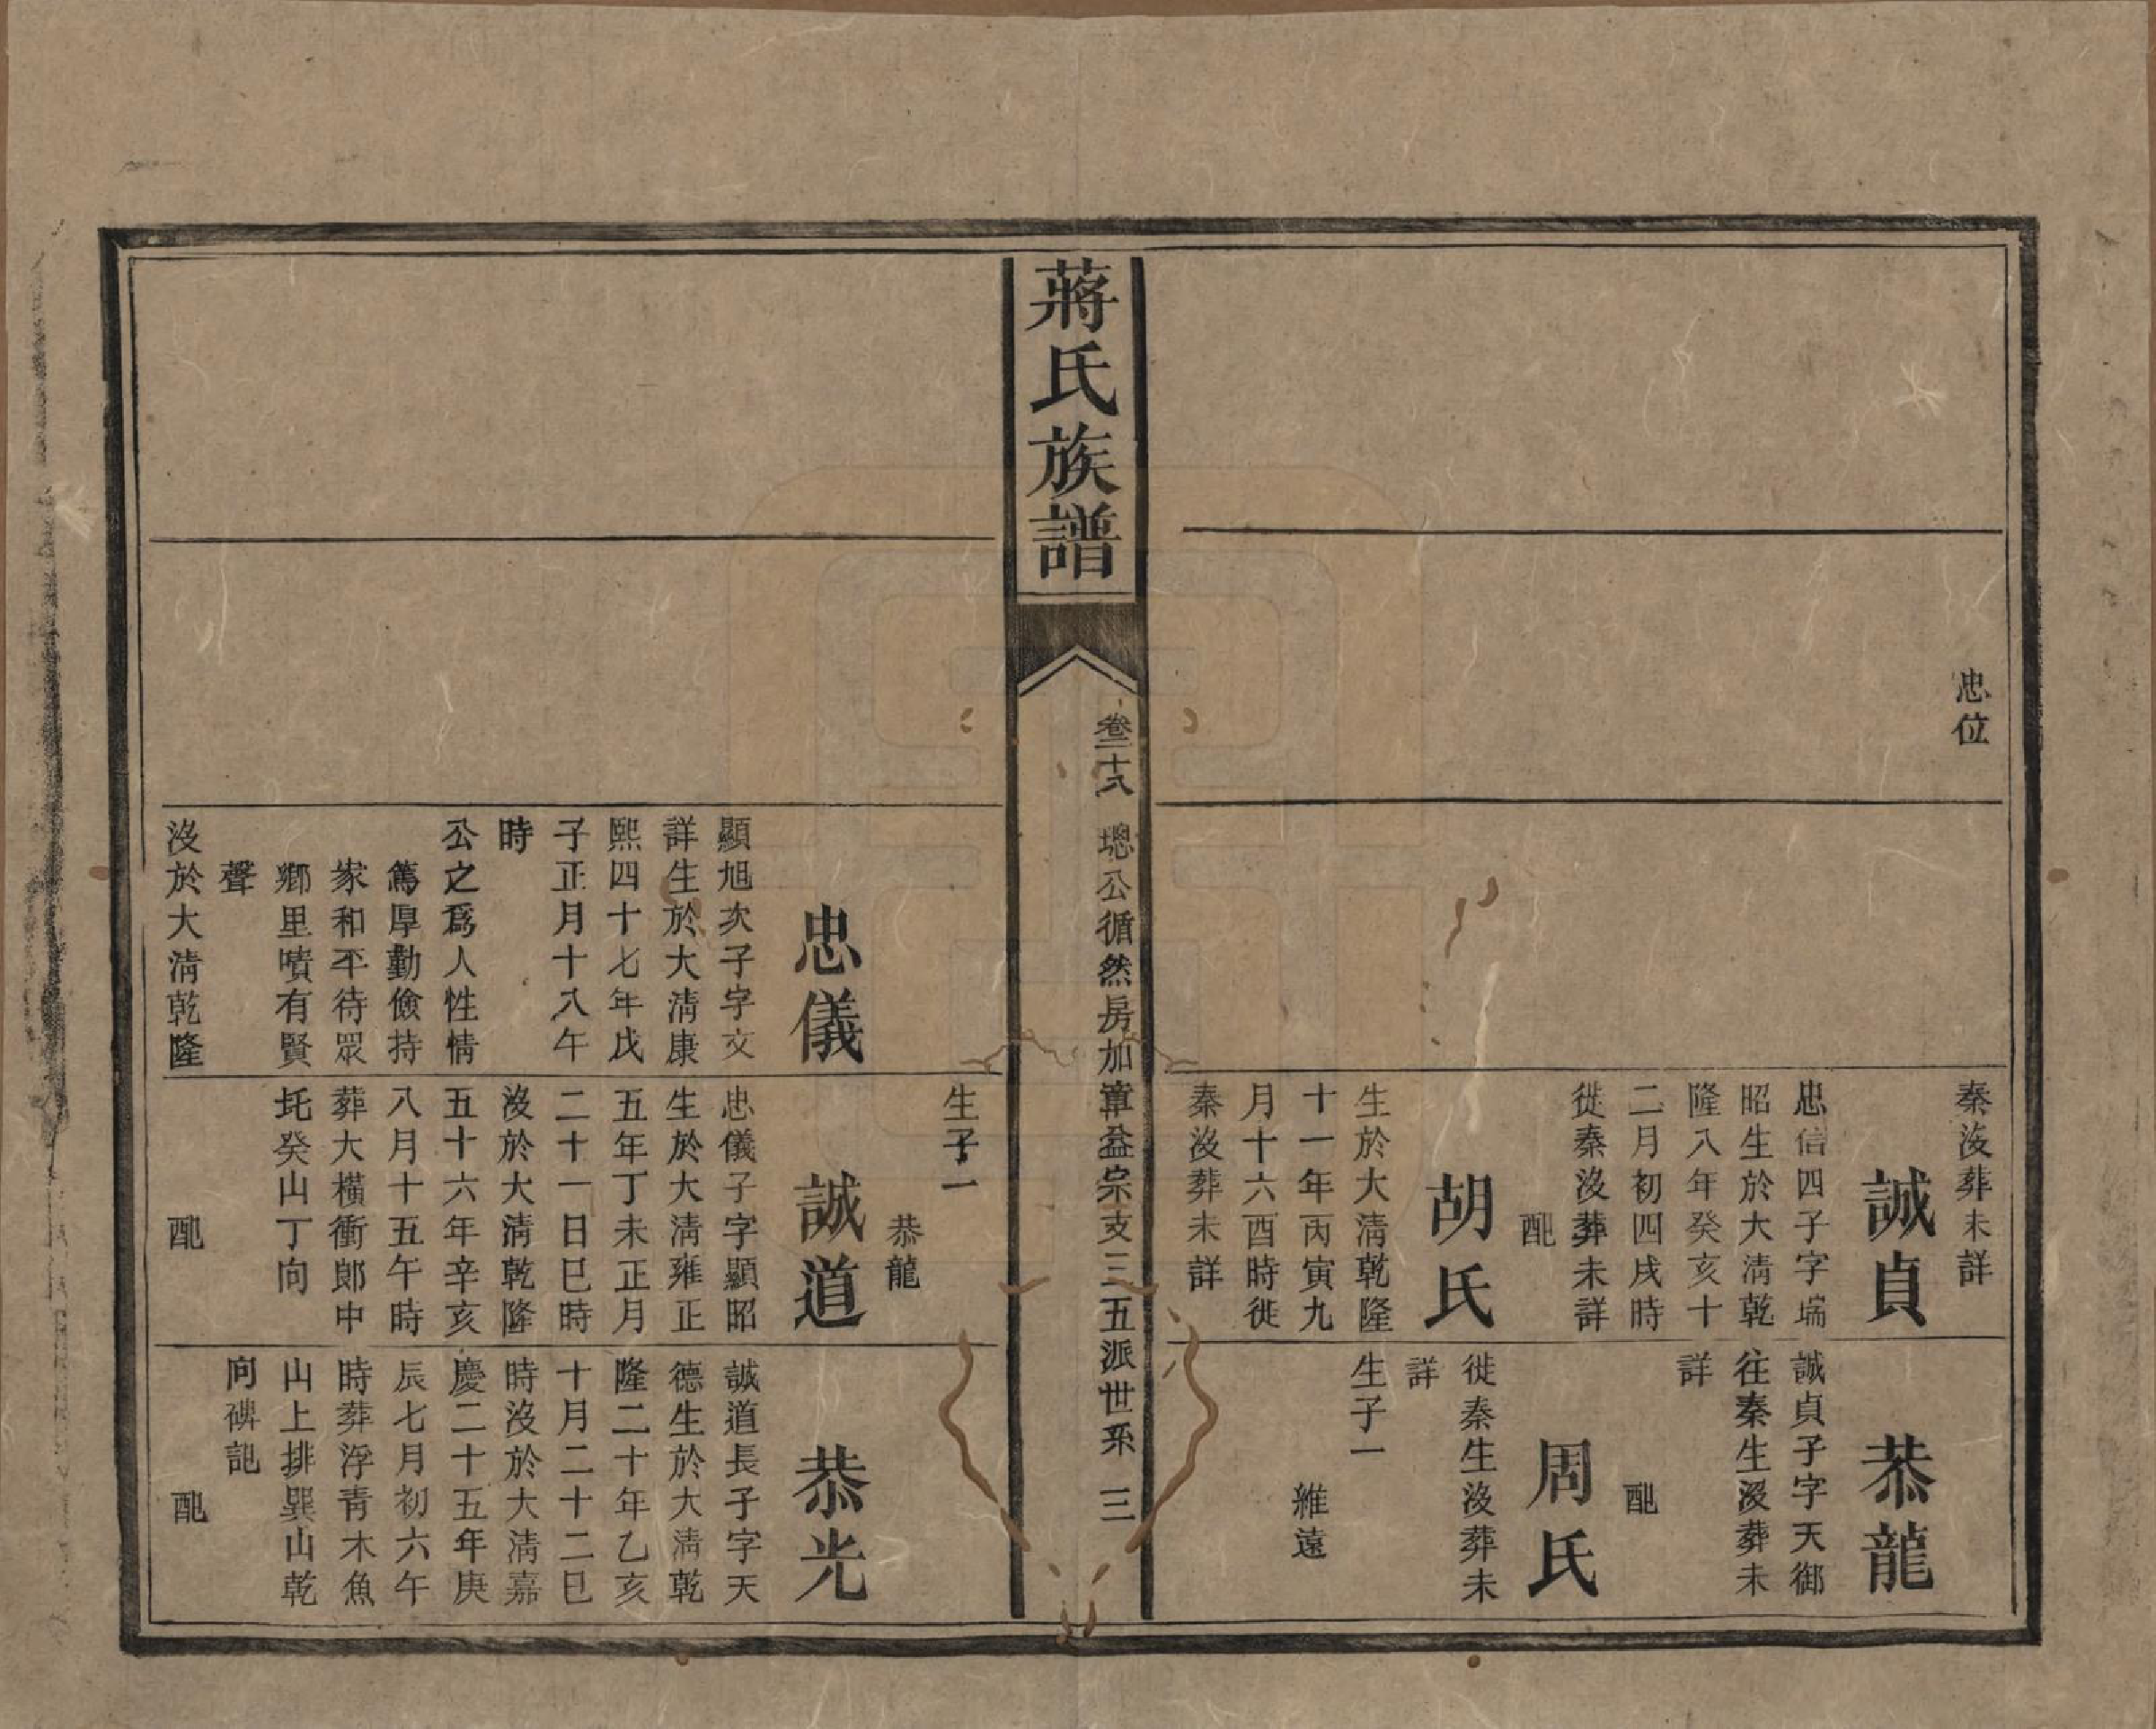 忠位
秦沒葬未詳
誠貞
忠信四子字瑞
昭生於大清乾
隆八年癸亥十
二月初四戌時
徙秦沒葬未詳
配
胡氏
生於大清乾隆
十一年丙寅九
月十六酉時徙
秦沒葬未詳
恭龍
誠貞子字天御
往秦生沒葬未
詳
配
周氏
徙秦生沒葬未
詳
生子一
維遠
蔣氏族譜
卷二十八
璁公循然房加章益宗支三五派世系
三
忠儀
顯旭次子字文
詳生於大清康
熙四十七年戊
子正月十八午
時
公之爲人性情
篤厚勤儉持
家和平待眾
鄉里嘖有賢
聲
沒於大清乾隆
生子一
恭龍
誠道
忠儀子字顯昭
生於大清雍正
五年丁未正月
二十一日巳時
沒於大清乾隆
五十六年辛亥
八月十五午時
葬大橫衝郞中
圫癸山丁向
配
恭光
誠道長子字天
德生於大清乾
隆二十年乙亥
十月二十二巳
時沒於大清嘉
慶二十五年庚
辰七月初六午
時葬浮青木魚
山上排巽山乾
向碑記
配